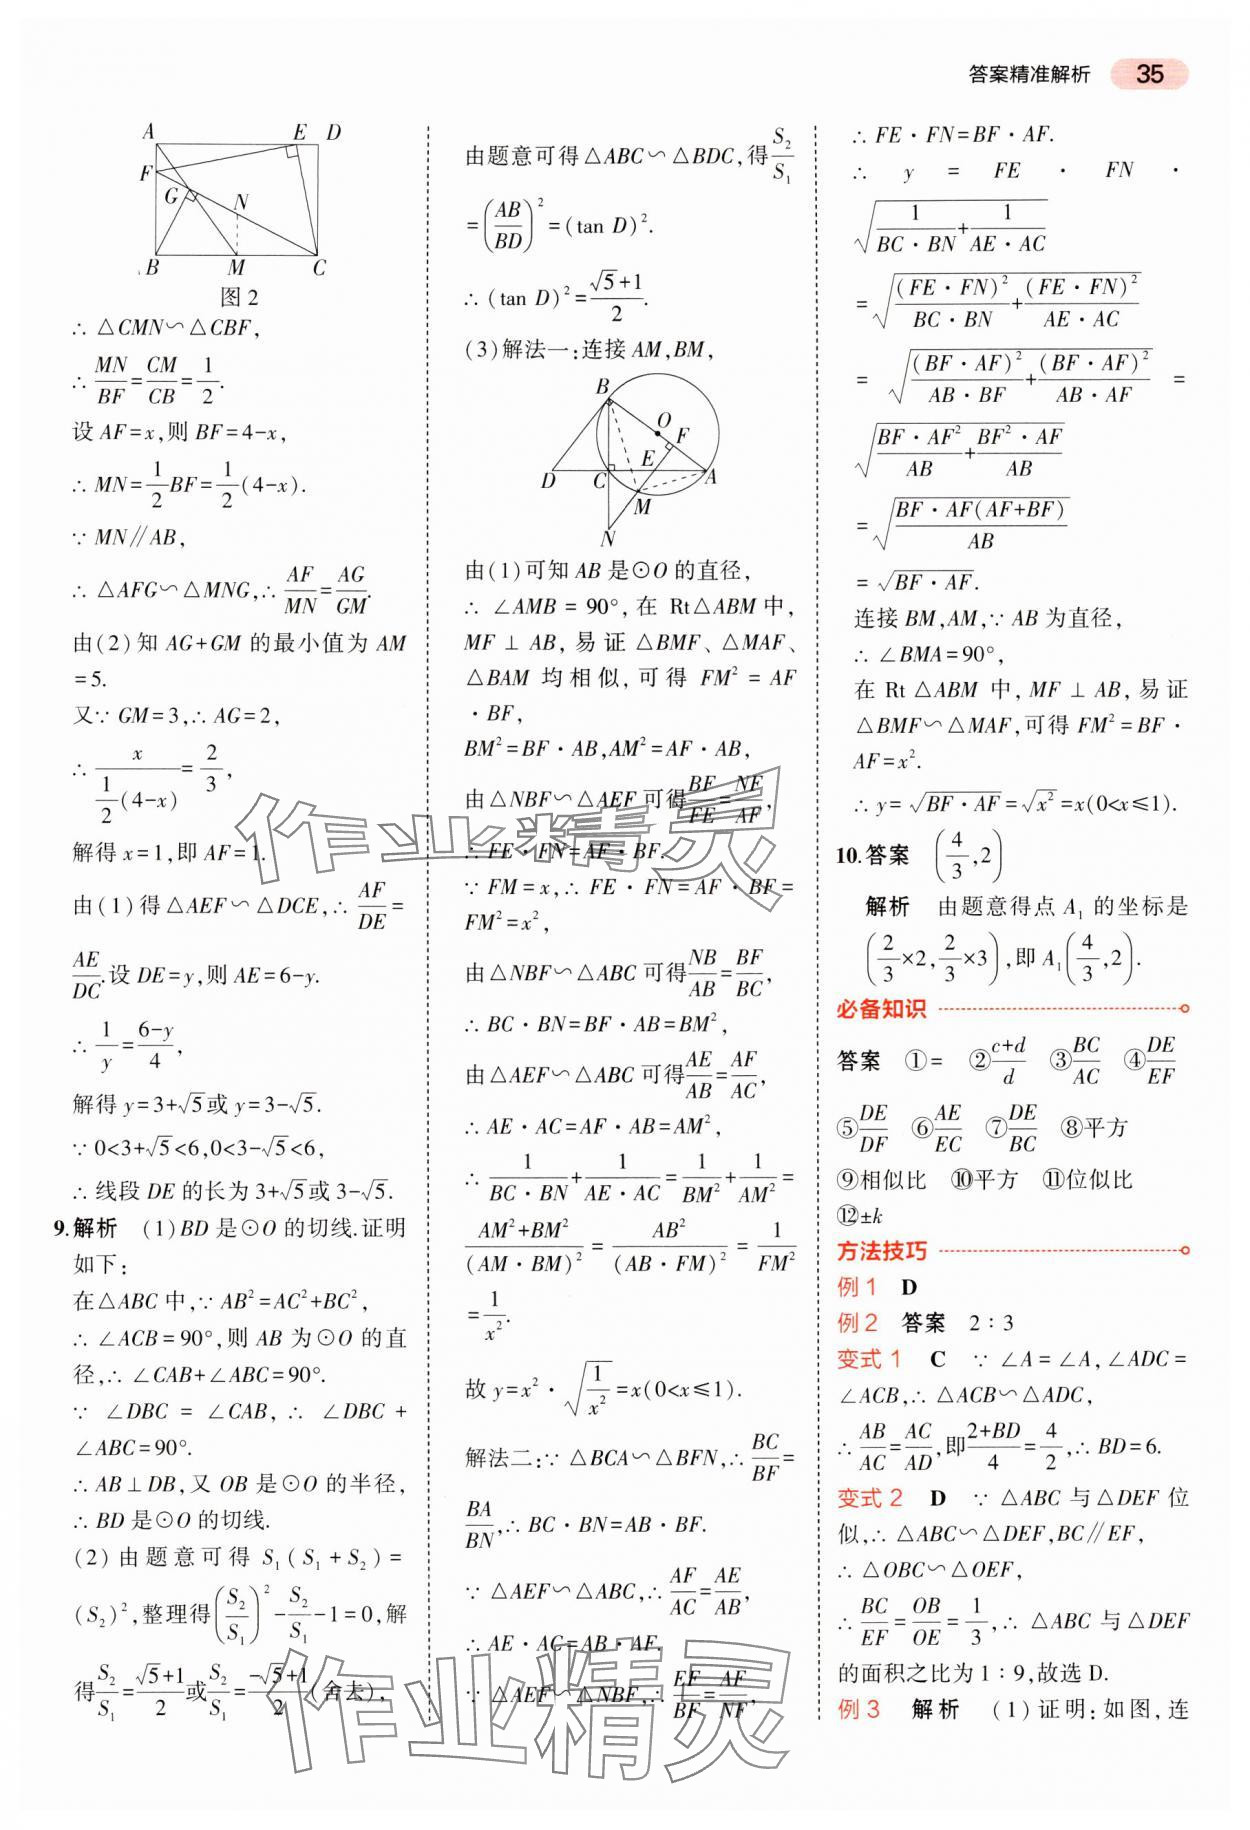 答案精准解析 35
A E D
F
G N
B M C
图2
∴ △CMN∽△CBF,
∴ MN/BF=CM/CB=1/2.
设 AF=x,则 BF=4-x,
∴ MN=1/2BF=1/2(4-x).
∵ MN∥AB,
∴ △AFG∽△MNG,∴ AF/MN=AG/GM.
由(2)知 AG+GM 的最小值为 AM
=5.
又∵ GM=3,∴ AG=2,
∴ x/(1/2(4-x))=2/3,
解得 x=1,即 AF=1.
由(1)得△AEF∽△DCE,∴ AF/DE=
AE/DC.设 DE=y,则 AE=6-y.
∴ 1/y=(6-y)/4,
解得 y=3+√5或 y=3-√5.
∵ 0<3+√5<6,0<3-√5<6,
∴ 线段 DE 的长为 3+√5或 3-√5.
9.解析 (1)BD 是⊙O 的切线.证明
如下:
在△ABC 中,∵ AB²=AC²+BC²,
∴ ∠ACB=90°,则 AB 为⊙O 的直
径,∴ ∠CAB+∠ABC=90°.
∵ ∠DBC = ∠CAB, ∴ ∠DBC +
∠ABC=90°.
∴ AB⊥DB,又 OB 是⊙O 的半径,
∴ BD 是⊙O 的切线.
(2) 由题意可得 S₁(S₁+S₂)=
(S₂)²,整理得(S₂/S₁)²-S₂/S₁-1=0,解
得S₂/S₁=(√5+1)/2或S₂/S₁=(-√5+1)/2(舍去),
由题意可得△ABC∽△BDC,得S₂/S₁
=(AB/BD)²=(tan D)².
∴ (tan D)²=(√5+1)/2.
(3)解法一:连接 AM,BM,
B
O
F
E
D C A
M
N
由(1)可知 AB 是⊙O 的直径,
∴ ∠AMB = 90°, 在 Rt△ABM 中,
MF⊥AB, 易证△BMF、△MAF、
△BAM 均相似, 可得 FM² = AF
·BF,
BM²=BF·AB,AM²=AF·AB,
由△NBF∽△AEF 可得BF/FE=NF/AF,
∴ FE·FN=AF·BF.
∵ FM=x,∴ FE·FN=AF·BF=
FM²=x²,
由△NBF∽△ABC 可得NB/AB=BF/BC,
∴ BC·BN=BF·AB=BM²,
由△AEF∽△ABC 可得AE/AB=AF/AC,
∴ AE·AC=AF·AB=AM²,
∴ 1/(BC·BN)+1/(AE·AC)=1/BM²+1/AM²=
(AM²+BM²)/(AM·BM)²=AB²/(AB·FM)²=1/FM²
=1/x².
故 y=x²·√(1/x²)=x(0<x≤1).
解法二:∵ △BCA∽△BFN,∴ BC/BF=
BA/BN,∴ BC·BN=AB·BF.
∵ △AEF∽△ABC,∴ AF/AC=AE/AB,
∴ AE·AC=AB·AF.
∵ △AEF∽△NBF,∴ EF/BF=AF/NF,
∴ FE·FN=BF·AF.
∴ y = FE · FN ·
√(1/(BC·BN)+1/(AE·AC))
=√((FE·FN)²/(BC·BN)+(FE·FN)²/(AE·AC))
= √((BF·AF)²/(AB·BF)+(BF·AF)²/(AB·AF)) =
√(BF·AF²/AB+BF²·AF/AB)
=√(BF·AF(AF+BF)/AB)
=√(BF·AF).
连接 BM,AM,∵ AB 为直径,
∴ ∠BMA=90°,
在 Rt△ABM 中, MF⊥AB, 易证
△BMF∽△MAF,可得 FM²=BF·
AF=x².
∴ y=√(BF·AF)=√(x²)=x(0<x≤1).
10.答案 (4/3,2)
解析 由题意得点 A₁ 的坐标是
(2/3×2,2/3×3),即 A₁(4/3,2).
必备知识
答案 ①= ②(c+d)/d ③BC/AC ④DE/EF
⑤DE/DF ⑥AE/EC ⑦DE/BC ⑧平方
⑨相似比 ⑩平方 ⑪位似比
⑫±k
方法技巧
例1 D
例2 答案 2∶3
变式1 C ∵ ∠A=∠A,∠ADC=
∠ACB,∴ △ACB∽△ADC,
∴ AB/AC=AC/AD,即(2+BD)/4=4/2,∴ BD=6.
变式2 D ∵ △ABC 与△DEF 位
似,∴ △ABC∽△DEF,BC∥EF,
∴ △OBC∽△OEF,
∴ BC/EF=OB/OE=1/3,∴ △ABC 与△DEF
的面积之比为 1∶9,故选 D.
例3 解析 (1)证明:如图,连
作业精灵
作业精灵